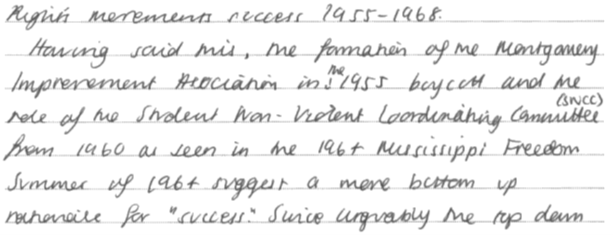 Rights movements success 1955-1968.
Having said this, the formation of the Montgomery
Improvement Association in the 1955 boycott and the
role of the Student Non-Violent Coordinating Committee (SNCC)
from 1960 as seen in the 1964 Mississippi Freedom
Summer of 1964 suggest a more bottom up
rationale for "success." Since arguably the top down